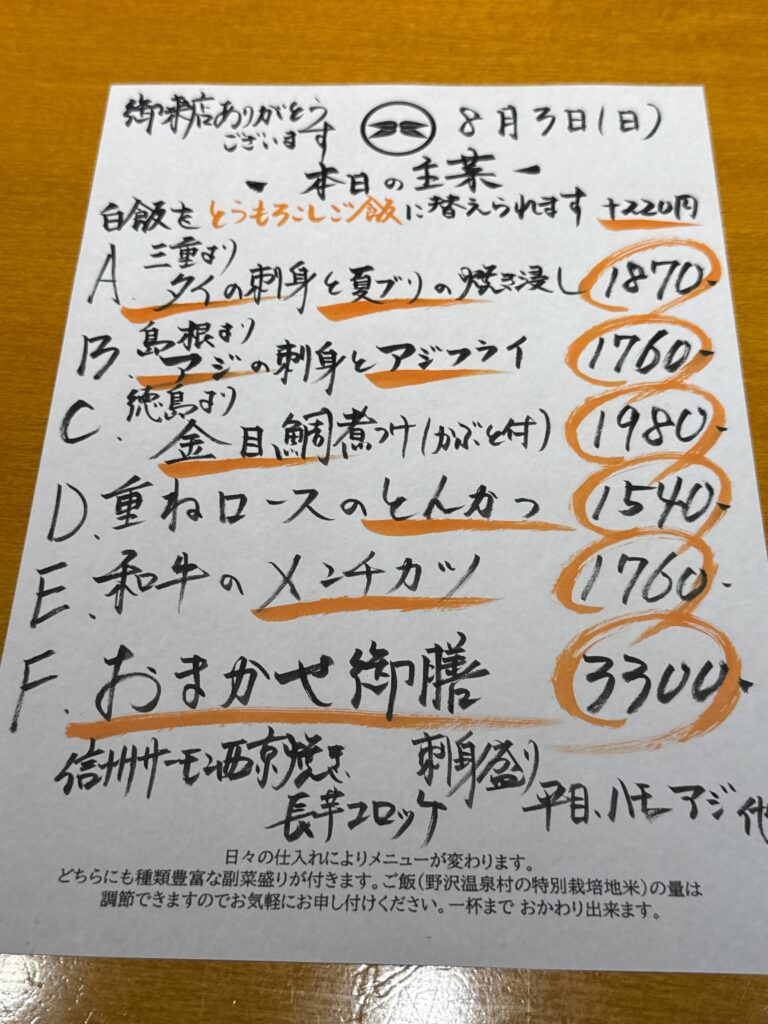 御来店ありがとう
ございます
8月3日(日)
- 本日の主菜 -
白飯をとうもろこしご飯に替えられます +220円
A. 三重より
タイの刺身と夏ブリの焼き浸し 1870-
B. 島根より
アジの刺身とアジフライ 1760-
C. 徳島より
金目鯛煮つけ(かぶと付) 1980-
D. 重ねロースのとんかつ 1540-
E. 和牛のメンチカツ 1760-
F. おまかせ御膳 3300-
信州サーモン西京焼き 刺身盛り
長芋コロッケ 平目、ハモ、アジ他
日々の仕入れによりメニューが変わります。
どちらにも種類豊富な副菜盛りが付きます。ご飯(野沢温泉村の特別栽培地米)の量は
調節できますのでお気軽にお申し付けください。一杯まで おかわり出来ます。